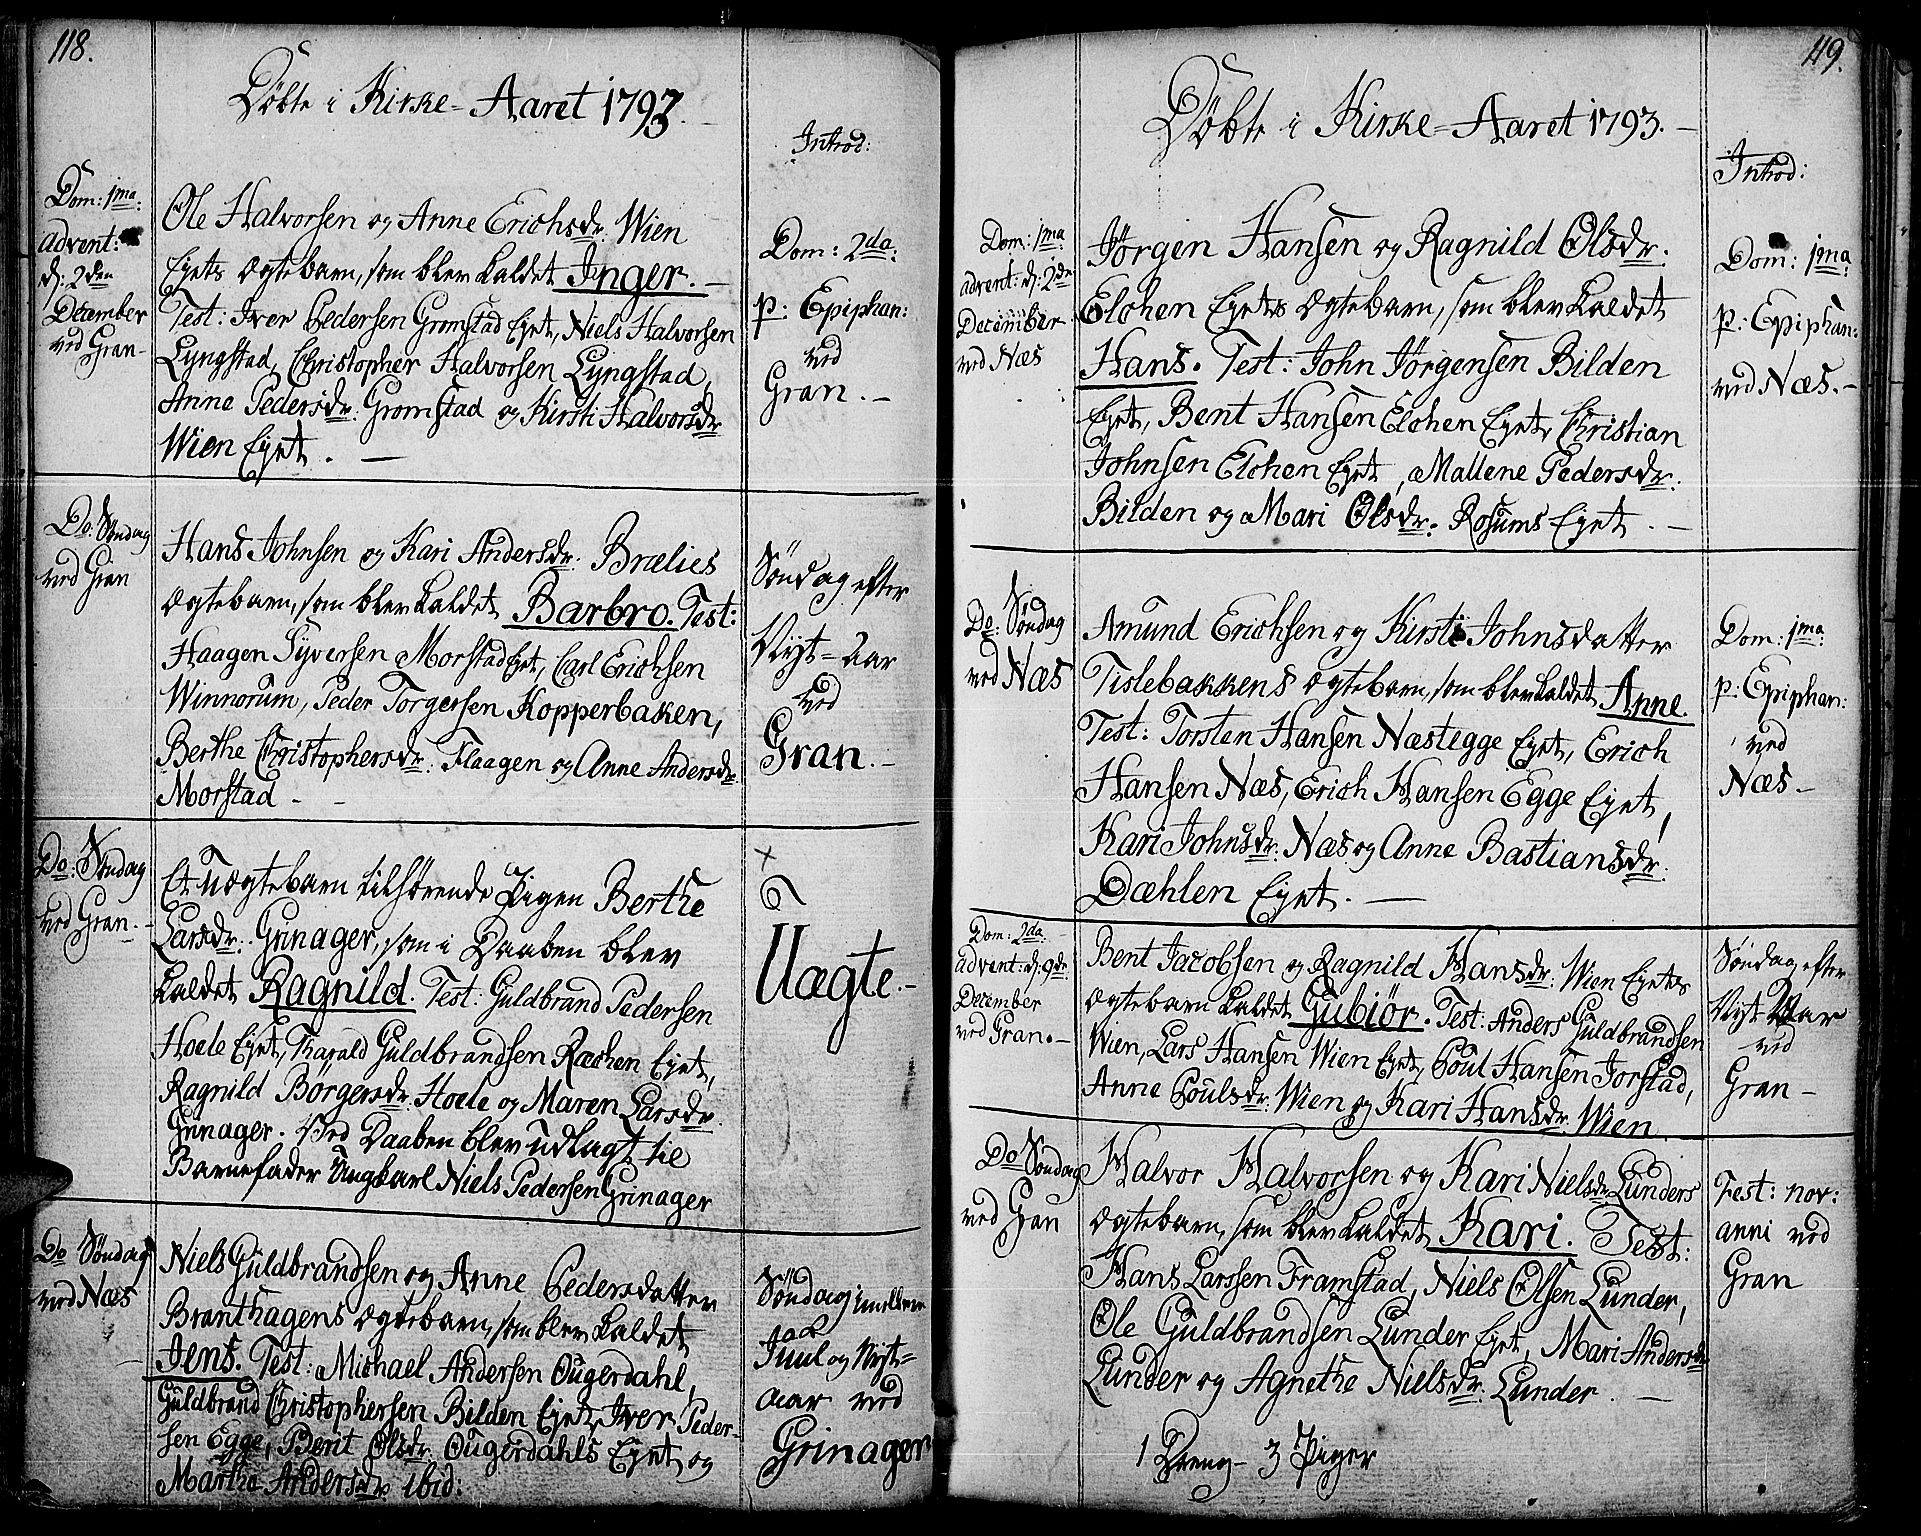 118.
Døbte i Kirke-Aaret 1793.
Introd:
Dom: 1ma
advent:
d: 2den
December
ved Gran-
Ole Halvorsen og Anne Erichsdr. Wien
Eyets ægtebarn, som blev kaldet Inger. -
Test: Iver Pedersen Gromstad Eyet, Niels Halvorsen
Lyngstad, Christopher Halvorsen Lyngstad,
Anne Pedersdr. Gromstad og Kirsti Halvorsdr
Wien Eyet. -
Dom: 2da
p: Epiphan:
ved
Gran. -
Do: Søndag
ved Gran
Hans Johnsen og Kari Andersdr. Brælies
ægtebarn, som blev kaldet Barbro. Test:
Haagen Syversen Morstad Eyet, Carl Erichsen
Winnorum, Peder Torgersen Kopperbaken,
Berthe Christophersdr. Flaagen og Anne Andersdr
Morstad -
Søndag efter
Nyt-aar
ved
Gran. -
Do: Søndag
ved Gran. -
Et uægtebarn tilhørende Pigen Berthe
Larsdr. Grinager, som i Daaben blev
kaldet Ragnild. Test: Guldbrand Pedersen
Hoele Eyet, Harald Guldbrandsen Ræchen Eyet,
Ragnild Børgersdr. Hoele og Maren Larsdr.
Grinager. Ved Daaben blev udlagt til
Barnefader Ungkarl Niels Pedersen Grinager
Uægte. -
Do Søndag
ved Næs
Niels Guldbrandsen og Anne Pedersdatter
Branthagens ægtebarn, som blev kaldet
Jens. Test: Michael Andersen Ougerdahl,
Guldbrand Christophersen Bilden Eyet, Iver Peder-
sen Egge, Berit Olsdr. Ougerdahls Eyet og
Marthe Andersdr. ibid:
Søndag imellem
Juul og Nyt-
aar ved
Grinager
119.
Døbte i Kirke-Aaret 1793. -
Introd:
Dom: 1ma
advent: d: 2den
December
ved Næs
Jørgen Hansen og Ragnild Olsdr.
Elchen Eyets ægtebarn, som blev kaldet
Hans. Test: John Jørgensen Bilden
Eyet, Bent Hansen Elchen Eyet, Christian
Johnsen Elchen Eyet, Mallene Pedersdr.
Bilden og Mari Olsdr. Rosums Eyet. -
Dom: 1ma
p: Epiphan:
ved Næs. -
Do: Søndag
ved Næs
Amund Erichsen og Kirsti Johnsdatter
Tislebakkens ægtebarn, som blev kaldet Anne.
Test: Torsten Hansen Næstegge Eyet, Erich
Hansen Næs, Erich Hansen Egge Eyet,
Kari Johnsdr. Næs og Anne Bastiansdr.
Dæhlen Eyet. -
Dom: 1ma
p: Epiphan:
ved
Næs -
Dom: 2da
advent: d: 9de
December
ved Gran. -
Bent Jacobsen og Ragnild Hansdr. Wien Eyets
ægtebarn kaldet Gubiør. Test: Anders Guldbrandsen
Wien, Lars Hansen Wien Eyet, Poul Hansen Jorstad,
Anne Poulsdr. Wien og Kari Hansdr. Wien
Søndag efter
Nyt Aar
ved
Gran -
Do Søndag
ved Gran
Halvor Halvorsen og Kari Nielsdr. Lunders
ægtebarn, som blev kaldet Kari. Test:
Hans Larssen Framstad, Niels Olsen Lunder,
Ole Guldbrandsen Lunder Eyet, Mari Andersdr
Lunder og Agnethe Nielsdr. Lunder. -
Fest: nov:
anni ved
Gran
1 Dreng - 3 Piger